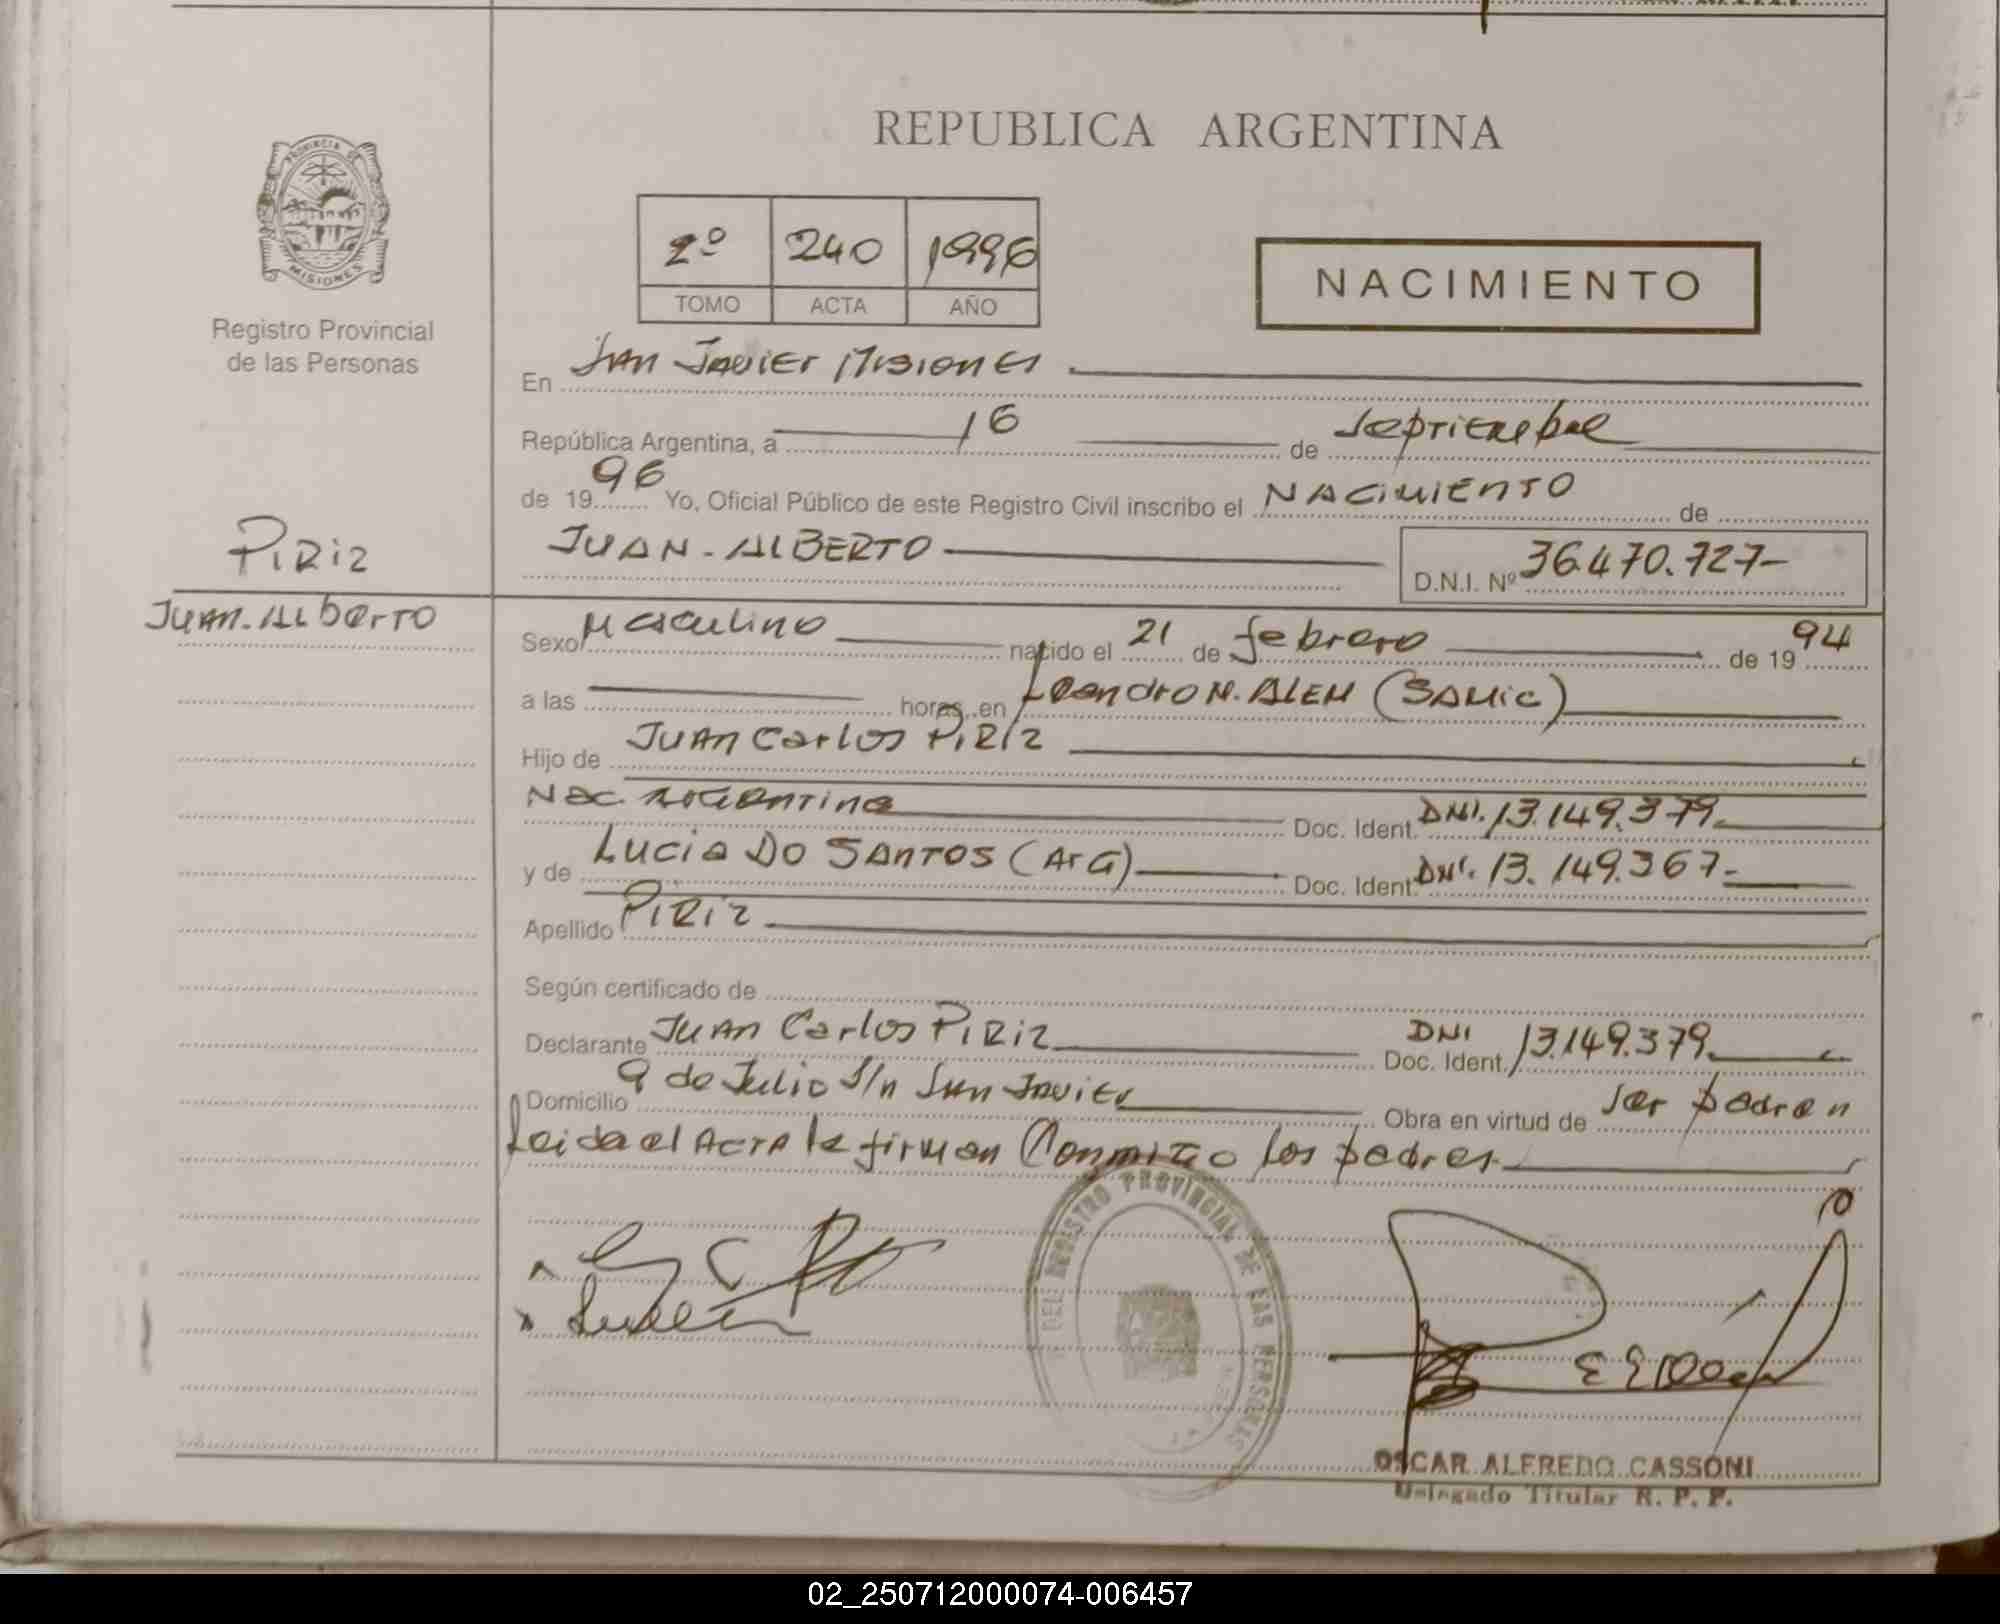 REPUBLICA ARGENTINA
PROVINCIA DE
MISIONES
Registro Provincial
de las Personas
2º 240 1996
TOMO ACTA AÑO
NACIMIENTO
En San Javier Misiones
República Argentina, a 16 de Septiembre
de 1996 Yo, Oficial Público de este Registro Civil inscribo el NACIMIENTO de
JUAN-ALBERTO
D.N.I. Nº 36.470.727-
PIRIZ
Juan-Alberto
Sexo Masculino nacido el 21 de febrero de 1994
a las horas, en Leandro N. ALEM (SAMIC)
Hijo de Juan Carlos PIRIZ
Nac. Argentina Doc. Ident. DNI. 13.149.379.
y de Lucia DO SANTOS (ArG) Doc. Ident. DNI. 13.149.367-
Apellido PIRIZ
Según certificado de
Declarante Juan Carlos PIRIZ Doc. Ident. DNI 13.149.379.
Domicilio 9 de Julio S/n San Javier Obra en virtud de ser padre
Leida el Acta la firman Conmigo los padres
DEL REGISTRO PROVINCIAL DE LAS PERSONAS
OSCAR ALFREDO CASSONI
Delegado Titular R. P. P.
02_250712000074-006457